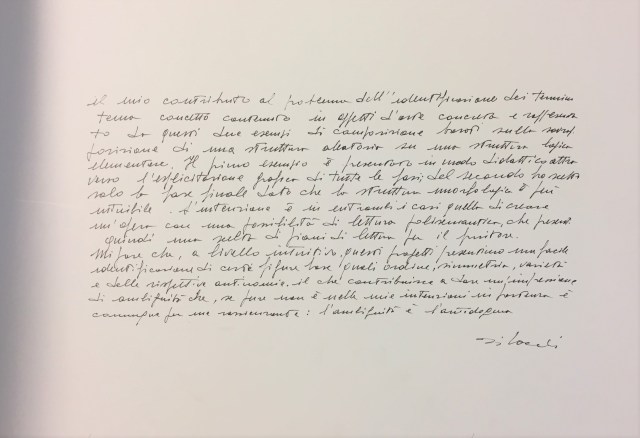 il mio contributo al problema dell'identificazione dei termini
tema concetto contenuto in oggetti d'arte concreta è rappresenta
to da questi due esempi di composizione basati sulla sovrap
posizione di una struttura aleatoria su una struttura logica
elementare. Il primo esempio è presentato in modo didattico attra
verso l'esplicitazione grafica di tutte le fasi; del secondo ho scelto
solo la fase finale dato che la struttura morfologica è più
intuibile. L'intenzione è in entrambi i casi quella di creare
un'opera con una possibilità di lettura polisemantica, che
quindi una scelta di piani di lettura per il fruitore.
Mi pare che, a livello intuitivo, questi progetti presentino una facile
identificazione di certe figure base quali ordine, simmetria, varietà
e delle rispettive antinomie. il che contribuisce a dare un'impressione
di ambiguità che, se pure non è nelle mie intenzioni in partenza è
comunque per me rassicurante: l'ambiguità è l'antidogma